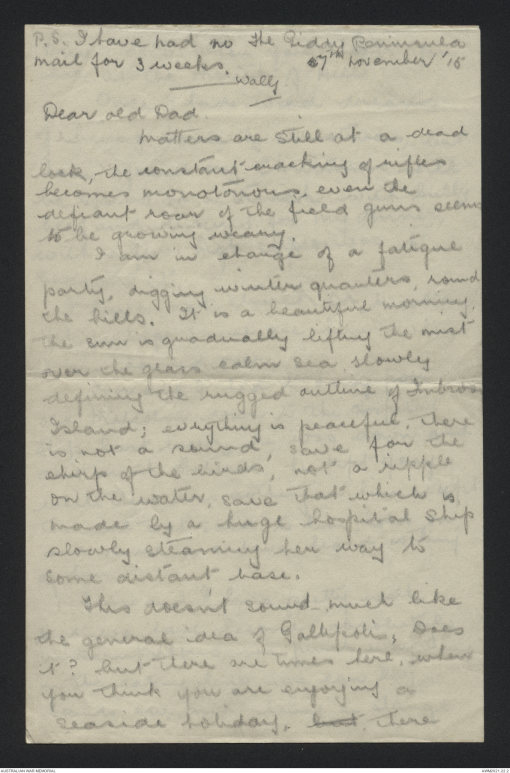 P.S. I have had no The Giddy Peninsula
mail for 3 weeks. 7th November '15
Wally
Dear old Dad
Matters are still at a dead
lock, the constant cracking of rifles
becomes monotonous, even the
defiant roar of the field guns seems
to be growing weary.
I am in charge of a fatigue
party, digging winter quarters, round
the hills. It is a beautiful morning,
the sun is guadually lifting the mist
over the glass calm sea slowly
defining the rugged outline of Imbros
Island; everything is peaceful. There
is not a sound, save for the
chirp of the birds, not a ripple
on the water, save that which is
made by a huge hospital ship
slowly steaming her way to
some distant base.
This doesn't sound much like
the general idea of Gallipoli, Does
it? but there are times here, when
you think you are enjoying a
seaside holiday. but there
AUSTRALIAN WAR MEMORIAL